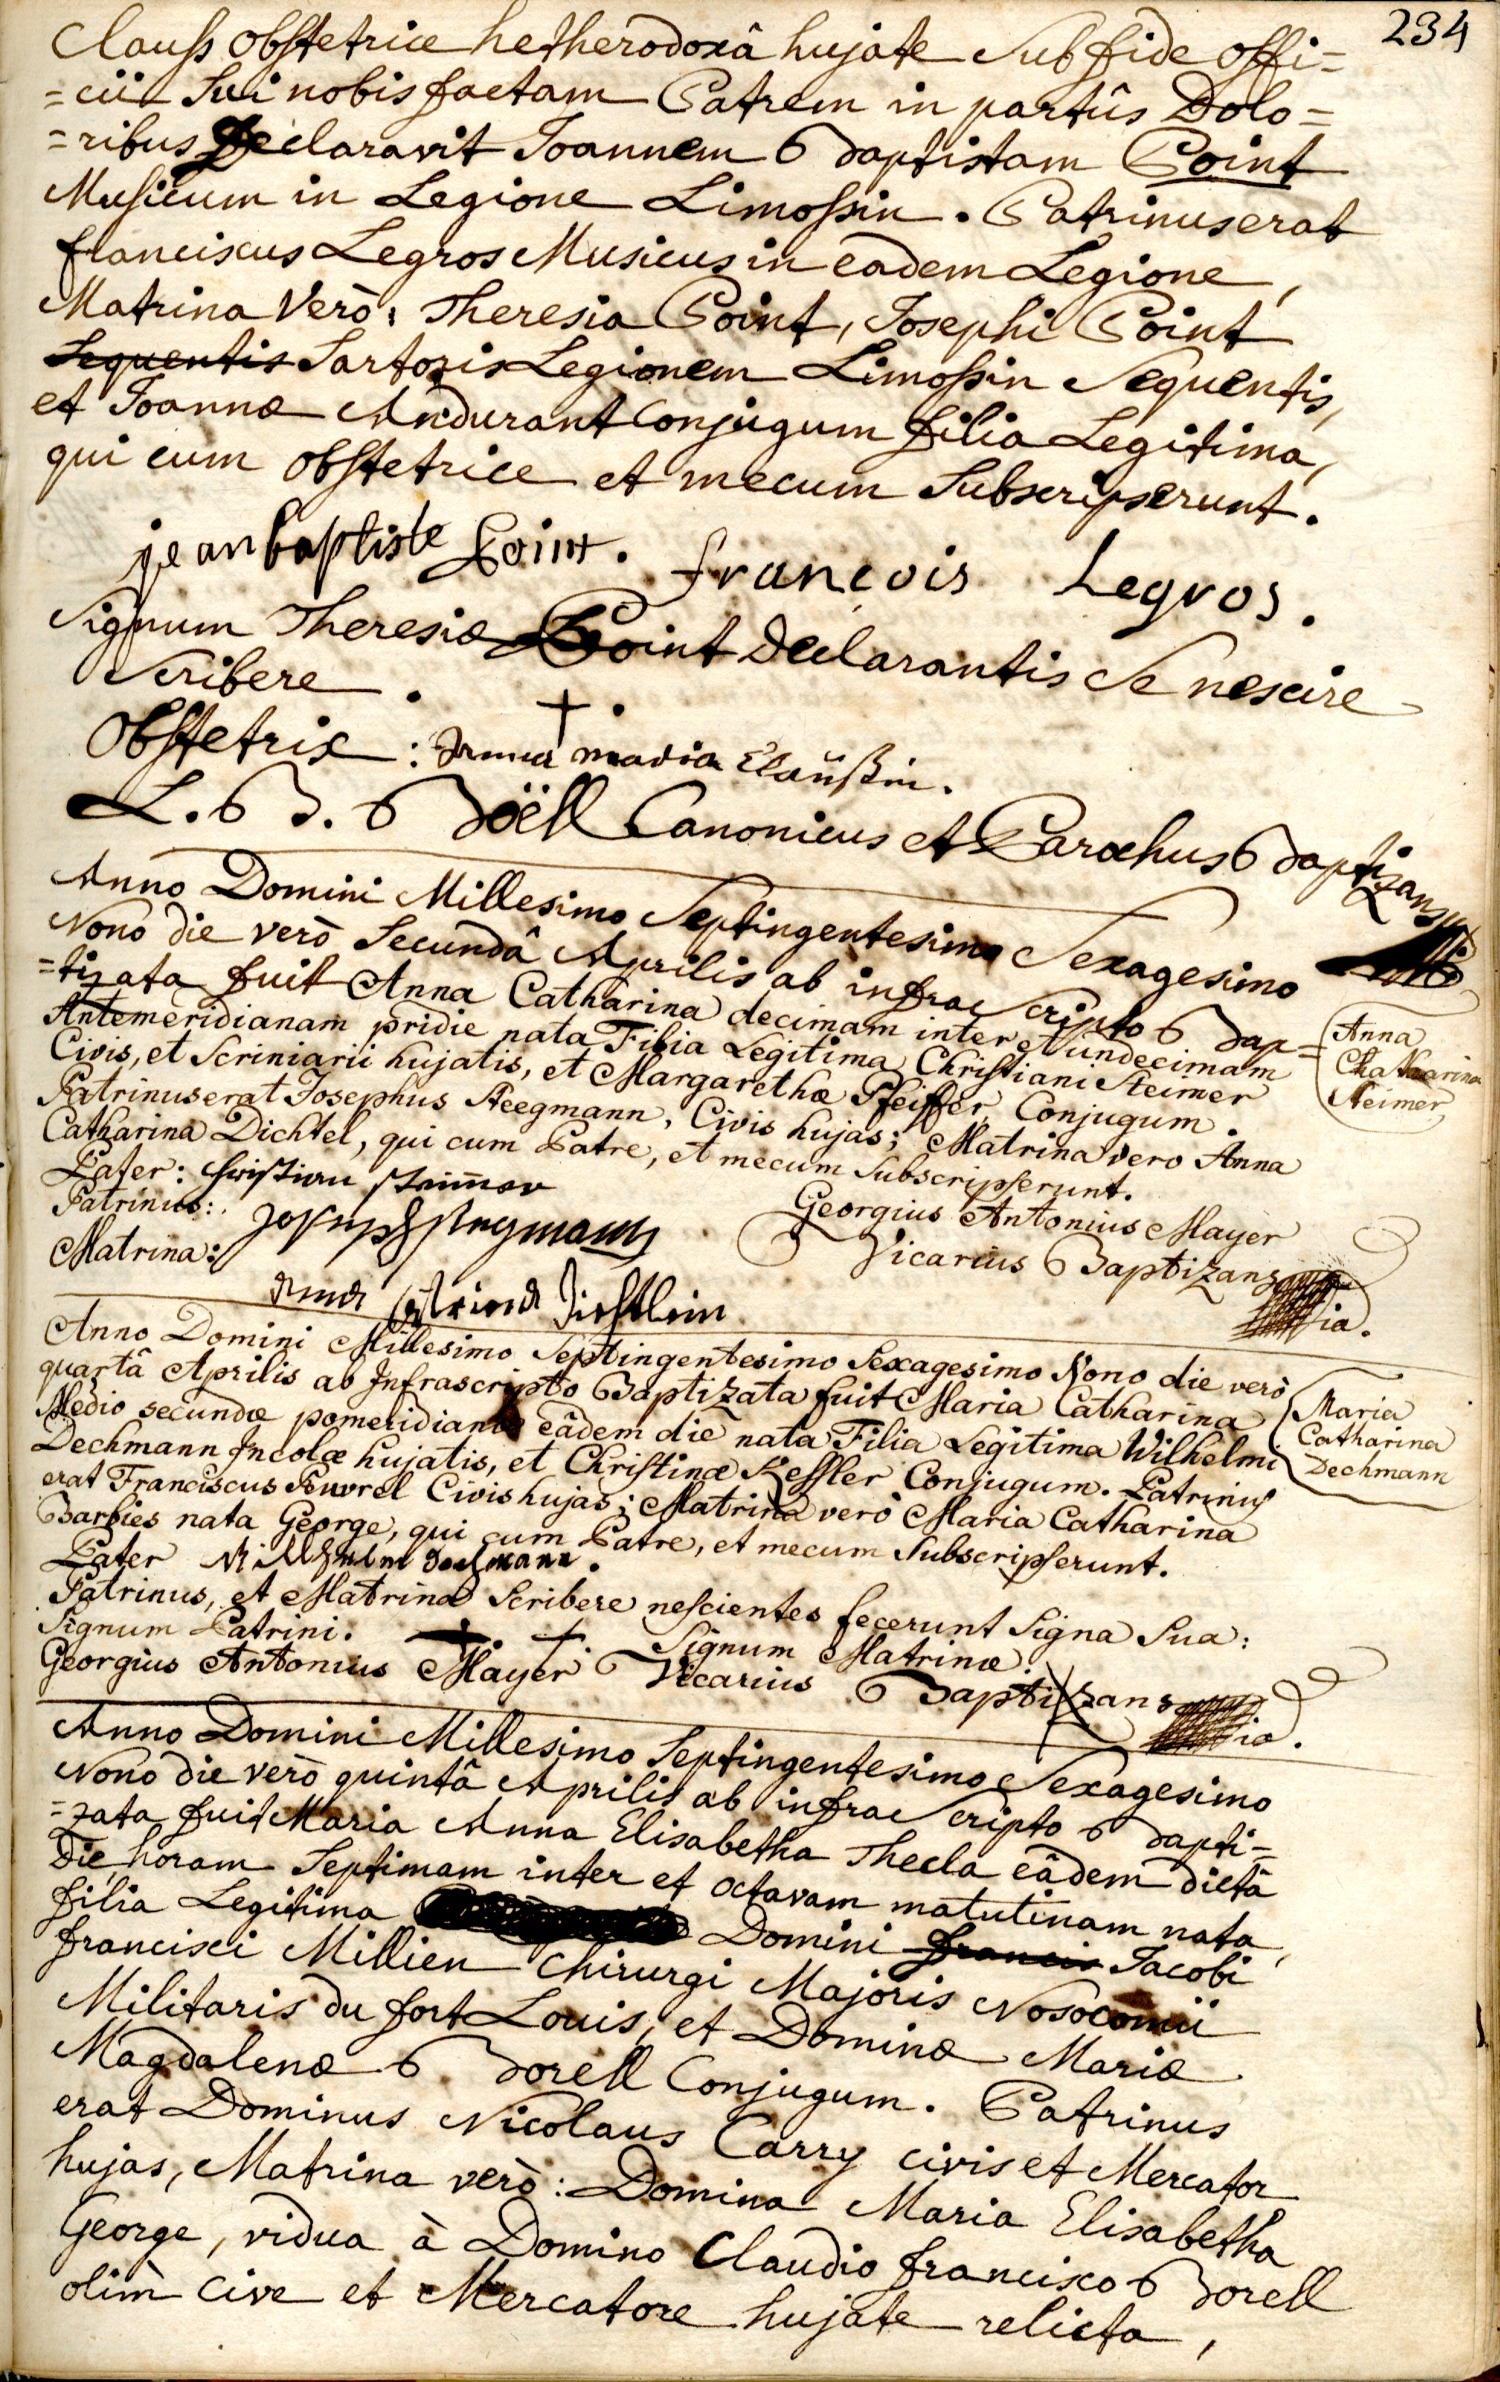 234
Clauss obstetrice hetherodoxâ hujate sub fide offi=
=cii sui nobis factam Patrem in partûs Dolo=
=ribus Declaravit Joannem Baptistam Point
Musicum in Legione Limossin. Patrinus erat
franciscus Legros Musicus in eadem Legione,
Matrina Verò: Theresia Point, Josephi Point
Sequentis Sartoris Legionem Limossin Sequentis,
et Joannæ Andurant Conjugum filia Legitima,
qui cum obstetrice et mecum Subscripserunt.
jean baptiste Point. francois Legros.
Signum Theresiæ Point Declarantis Se nescire
Scribere. +
Obstetrix: Anna maria Claußin.
L. B. Böell Canonicus et Parochus Baptizans
Anno Domini Millesimo Septingentesimo Sexagesimo
Nono die verò Secundâ Aprilis ab infra Scripto Bap=
=tizata fuit Anna Catharina decimam inter et undecimam
Antemeridianam pridie nata Filia Legitima Christiani Steimer
Civis, et Scriniarii hujatis, et Margarethæ Pfeiffer Conjugum.
Patrinus erat Josephus Steegmann, Civis hujas; Matrina vero Anna
Catharina Dichtel, qui cum Patre, et mecum Subscripserunt.
Anna
Chatharina
Steimer
Pater: Christian Steimer
Patrinus: Joseph Stegmann
Matrina: Anna Catrina Dichtlein
Georgius Antonius Mayer
Vicarius Baptizans
ia.
Anno Domini Millesimo Septingentesimo Sexagesimo Nono die verò
quartâ Aprilis ab Infrascripto Baptizata fuit Maria Catharina
Medio secundæ pomeridianæ eâdem die nata Filia Legitima Wilhelmi
Dechmann Incolæ hujatis, et Christinæ Kessler Conjugum. Patrinus
erat Franciscus Civis hujas; Matrina verò Maria Catharina
Barbies nata George, qui cum Patre, et mecum Subscripserunt.
Maria
Catharina
Dechmann
Pater Willhelm Dechmann.
Patrinus, et Matrina Scribere nescientes fecerunt Signa Sua:
Signum Patrini. + + Signum Matrinæ.
Georgius Antonius Mayer Vicarius Baptizans
ia.
Anno Domini Millesimo Septingentesimo Sexagesimo
Nono die verò quintâ Aprilis ab infra Scripto Bapti=
=zata fuit Maria Anna Elisabetha Thecla eâdem dictâ
Die, horam Septimam inter et octavam matutinam nata,
filia Legitima Domini francis Jacobi
francisci Millien Chirurgi Majoris Nosocomii
Militaris du fort Louis, et Dominæ Mariæ
Magdalenæ Borell Conjugum. Patrinus
erat Dominus Nicolaus Carry civis et Mercator
hujas, Matrina verò: Domina Maria Elisabetha
George, vidua à Domino Claudio francisco Borell
olim Cive et Mercatore hujate relicta,